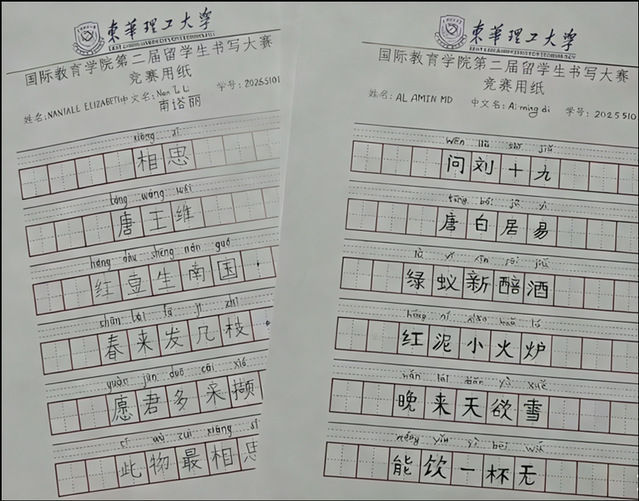 東華理工大學
EAST CHINA UNIVERSITY OF TECHNOLOGY
国际教育学院第二届留学生书写大赛
竞赛用纸
姓名:NANIALE ELIZABETH 中文名:Nan Lu Li 学号:2025S101
南谘丽
xiāng sī
相思
táng wáng wéi
唐王维
hóng dòu shēng nán guó
红豆生南国.
chūn lái fā jǐ zhī
春来发几枝
yuàn jūn duō cǎi xié
愿君多采撷
cǐ wù zuì xiāng sī
此物最相思
東華理工大學
EAST CHINA UNIVERSITY OF TECHNOLOGY
国际教育学院第二届留学生书写大赛
竞赛用纸
姓名:AL AMIN MD 中文名:Ai ming di 学号:2025S10
wèn liú shí jiǔ
问刘十九
táng bái jū yì
唐白居易
lǜ yǐ xīn pēi jiǔ
绿蚁新醅酒
hóng ní xiǎo huǒ lú
红泥小火炉
wǎn lái tiān yù xuě
晚来天欲雪
néng yǐn yì bēi wú
能饮一杯无